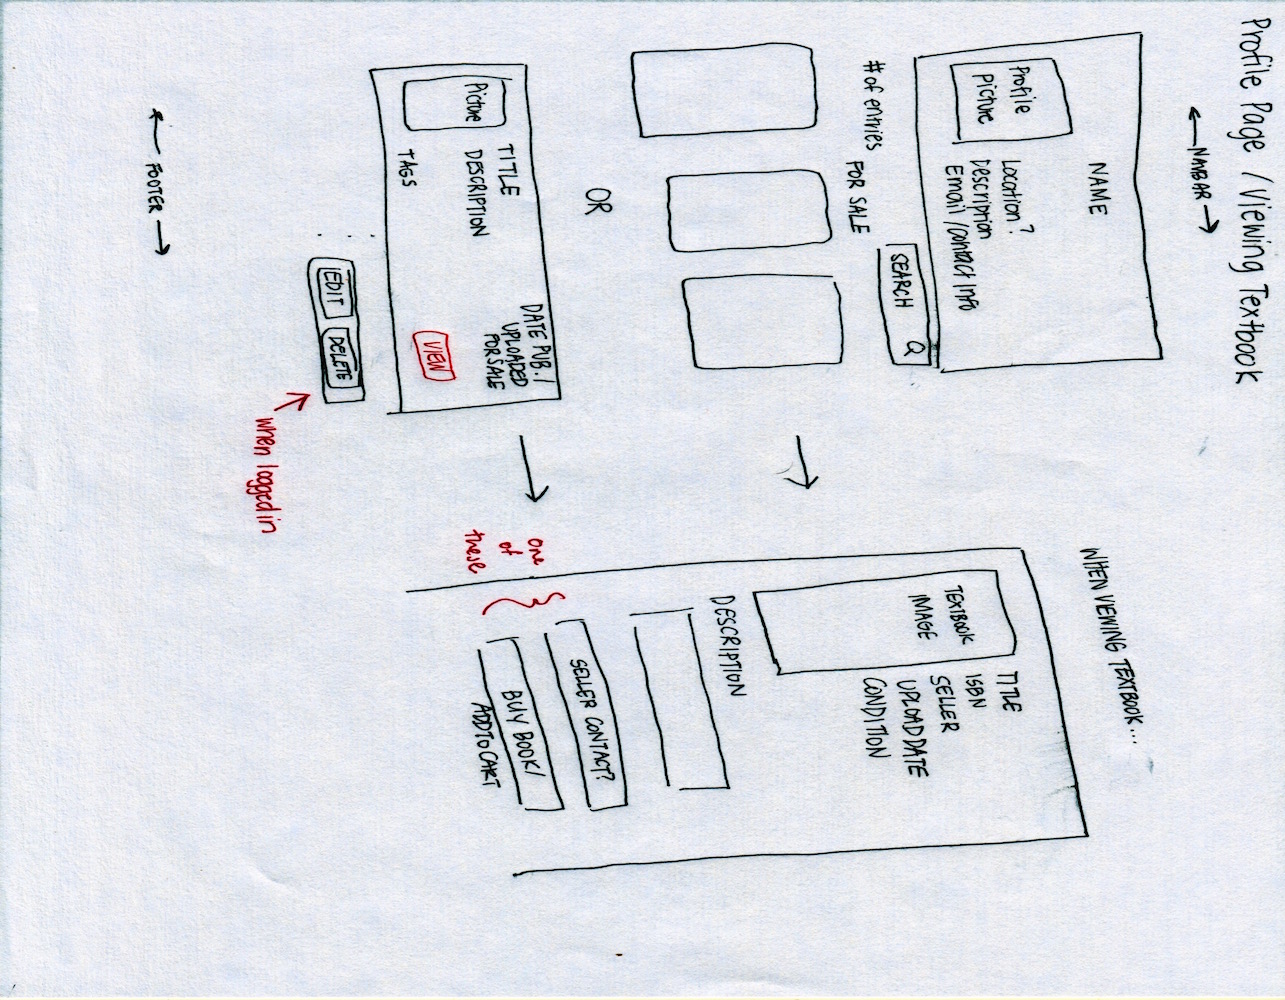 Profile Page / Viewing Textbook
← NAVBAR →
NAME
Profile
Picture
Location?
Description
Email/contact info
SEARCH
# of entries
FOR SALE
OR
Picture
TITLE
DESCRIPTION
TAGS
DATE PUB./
UPLOADED
FOR SALE
VIEW
EDIT
DELETE
when logged in
← FOOTER →
WHEN VIEWING TEXTBOOK...
TEXTBOOK
IMAGE
TITLE
ISBN
SELLER
UPLOAD DATE
CONDITION
DESCRIPTION
one
of
these
SELLER CONTACT?
BUY BOOK/
ADD TO CART